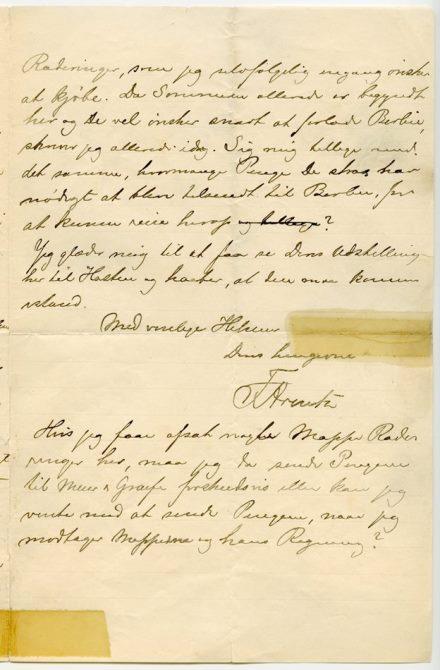 Raderinger, som jeg selvfølgelig engang ønsker
at kjøbe. Da Sommeren allerede er begyndt
her og De vel ønsker snart at forlade Berlin,
skriver jeg allerede idag. Sig mig tillige med
det samme, hvormange Penge De strax har
nødigt at blive tilsendt til Berlin, for
at kunne reise herop og tillige?
Jeg glæder mig til at faa se Deres Udstilling
her til Høsten og haaber, at den maa komme
istand.
Med venlige Hilsener
Deres hengivne
Hvis jeg faar afsat nogle Mappe Rader
inger her, maa jeg da sende Pengene
til Meier Graefe forskudsvis eller kan jeg
vente med at sende Pengene, naar jeg
modtager Mapperne og hans Regning?